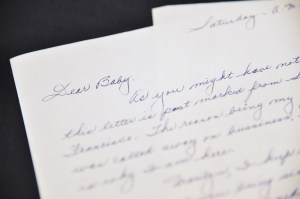 Saturday - A.M
Dear Baby,
As you might have not
this letter is post marked from S
Francisco. The reason being my
was called away on business,
is why I am here.